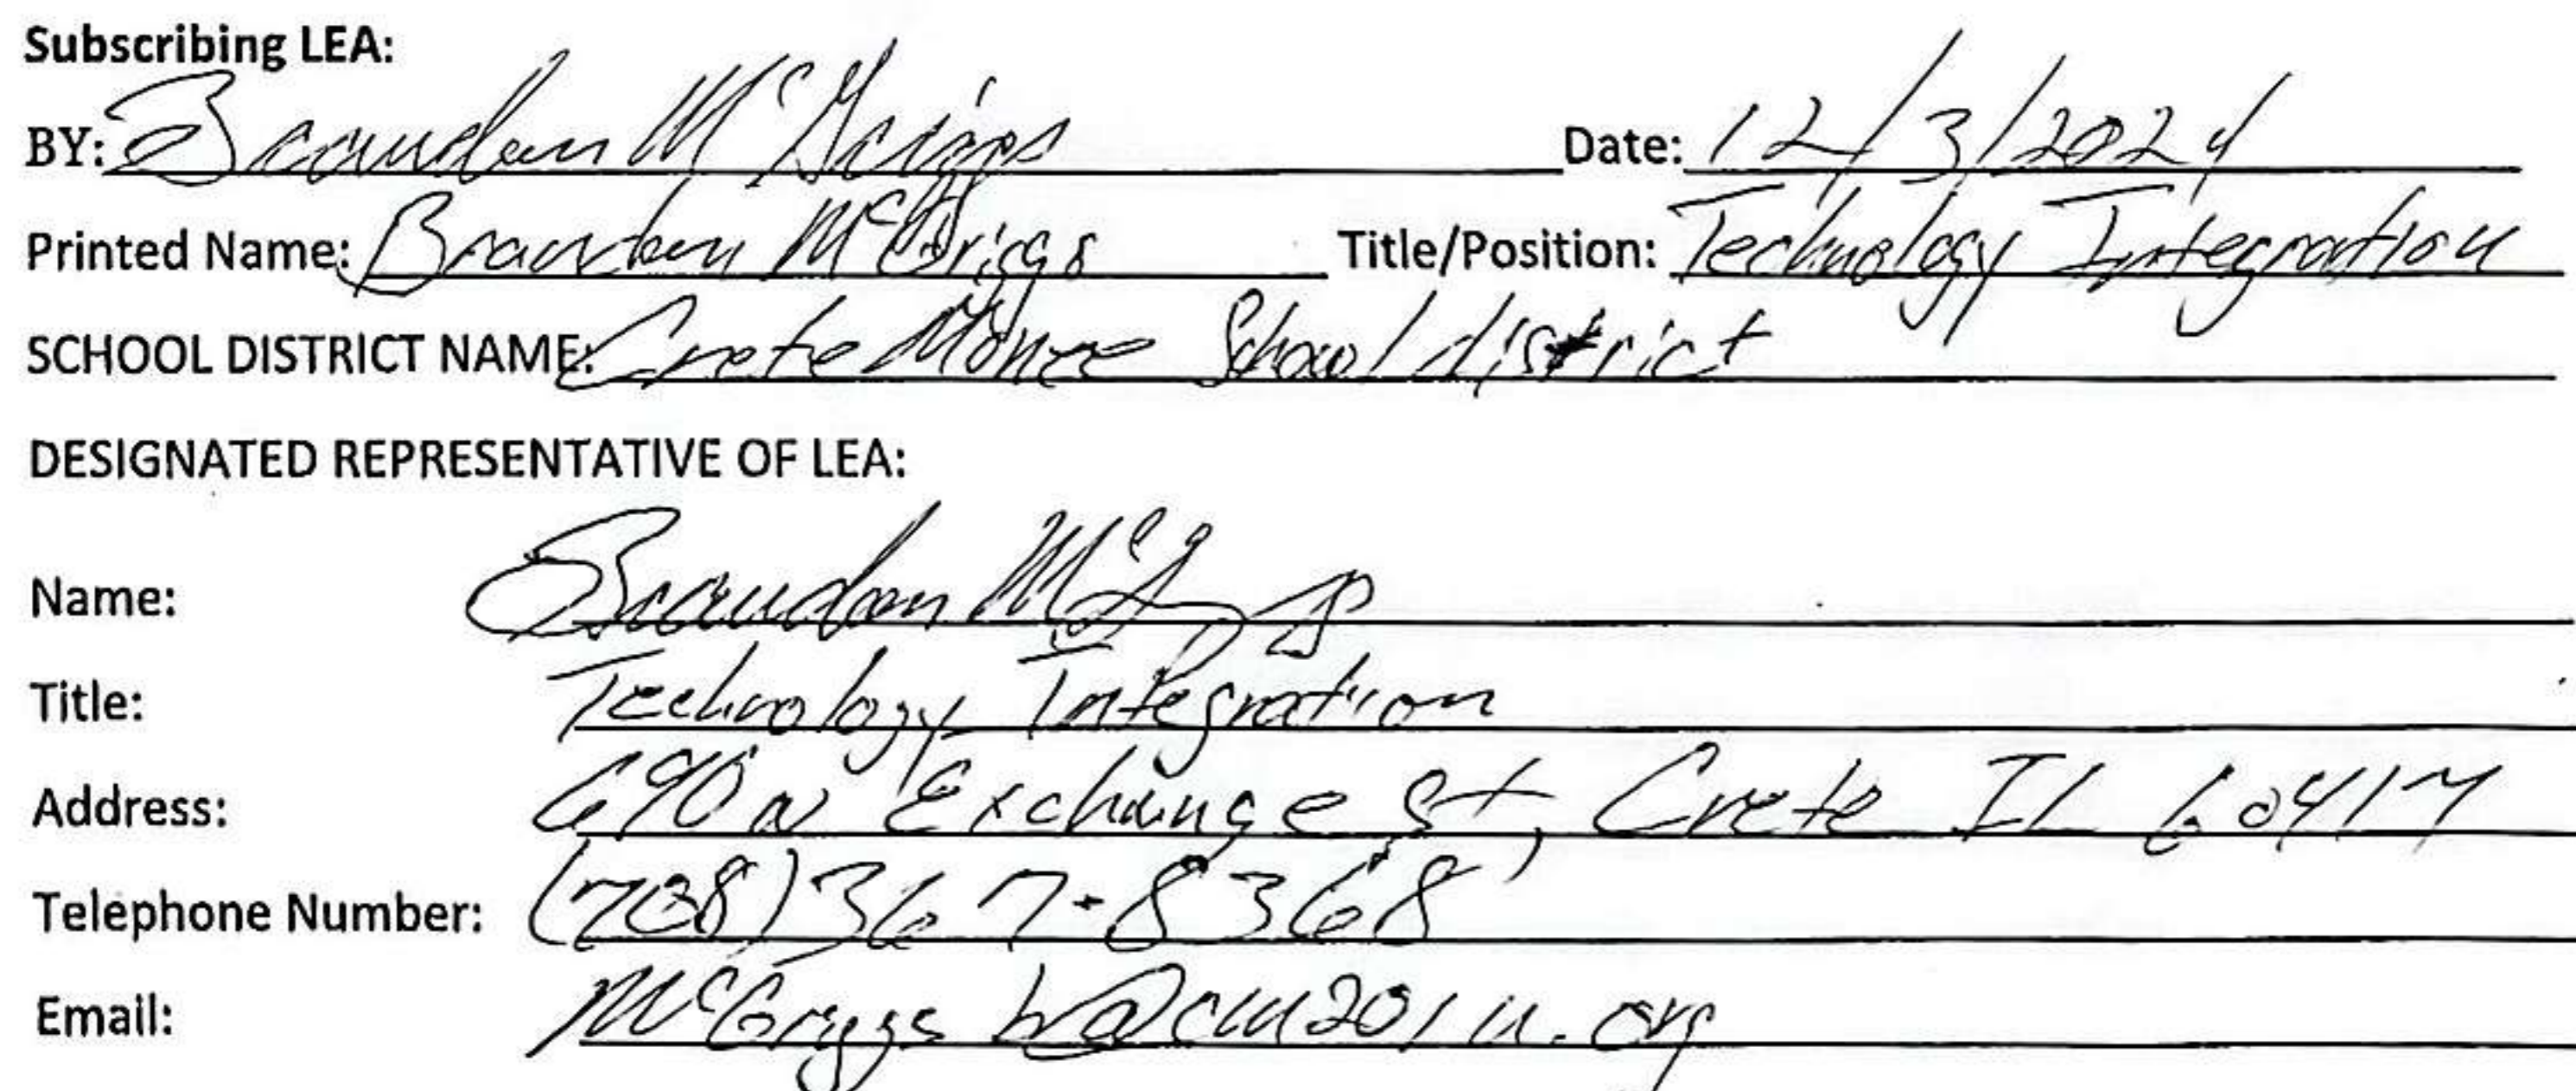 Subscribing LEA:
BY: Brandon McGriggs Date: 12/3/2024
Printed Name: Brandon McGriggs Title/Position: Technology Integration
SCHOOL DISTRICT NAME: Crete Monee School district
DESIGNATED REPRESENTATIVE OF LEA:
Name: Brandon McGriggs
Title: Technology Integration
Address: 690 W Exchange St, Crete IL 60417
Telephone Number: (708) 367-8368
Email: McGriggsb@cm201u.org